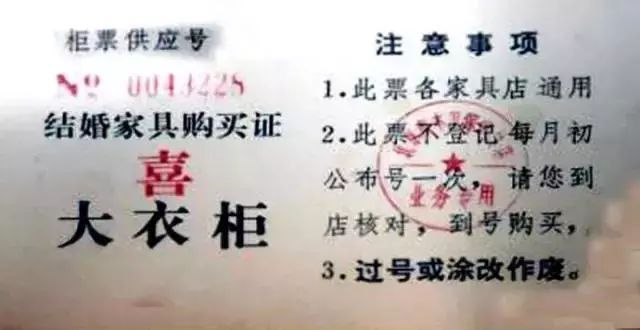 柜票供应号
№ 0043228
结婚家具购买证
喜
大衣柜
注意事项
1.此票各家具店通用
2.此票不登记每月初
公布号一次，请您到
店核对，到号购买，
3.过号或涂改作废。
业务专用